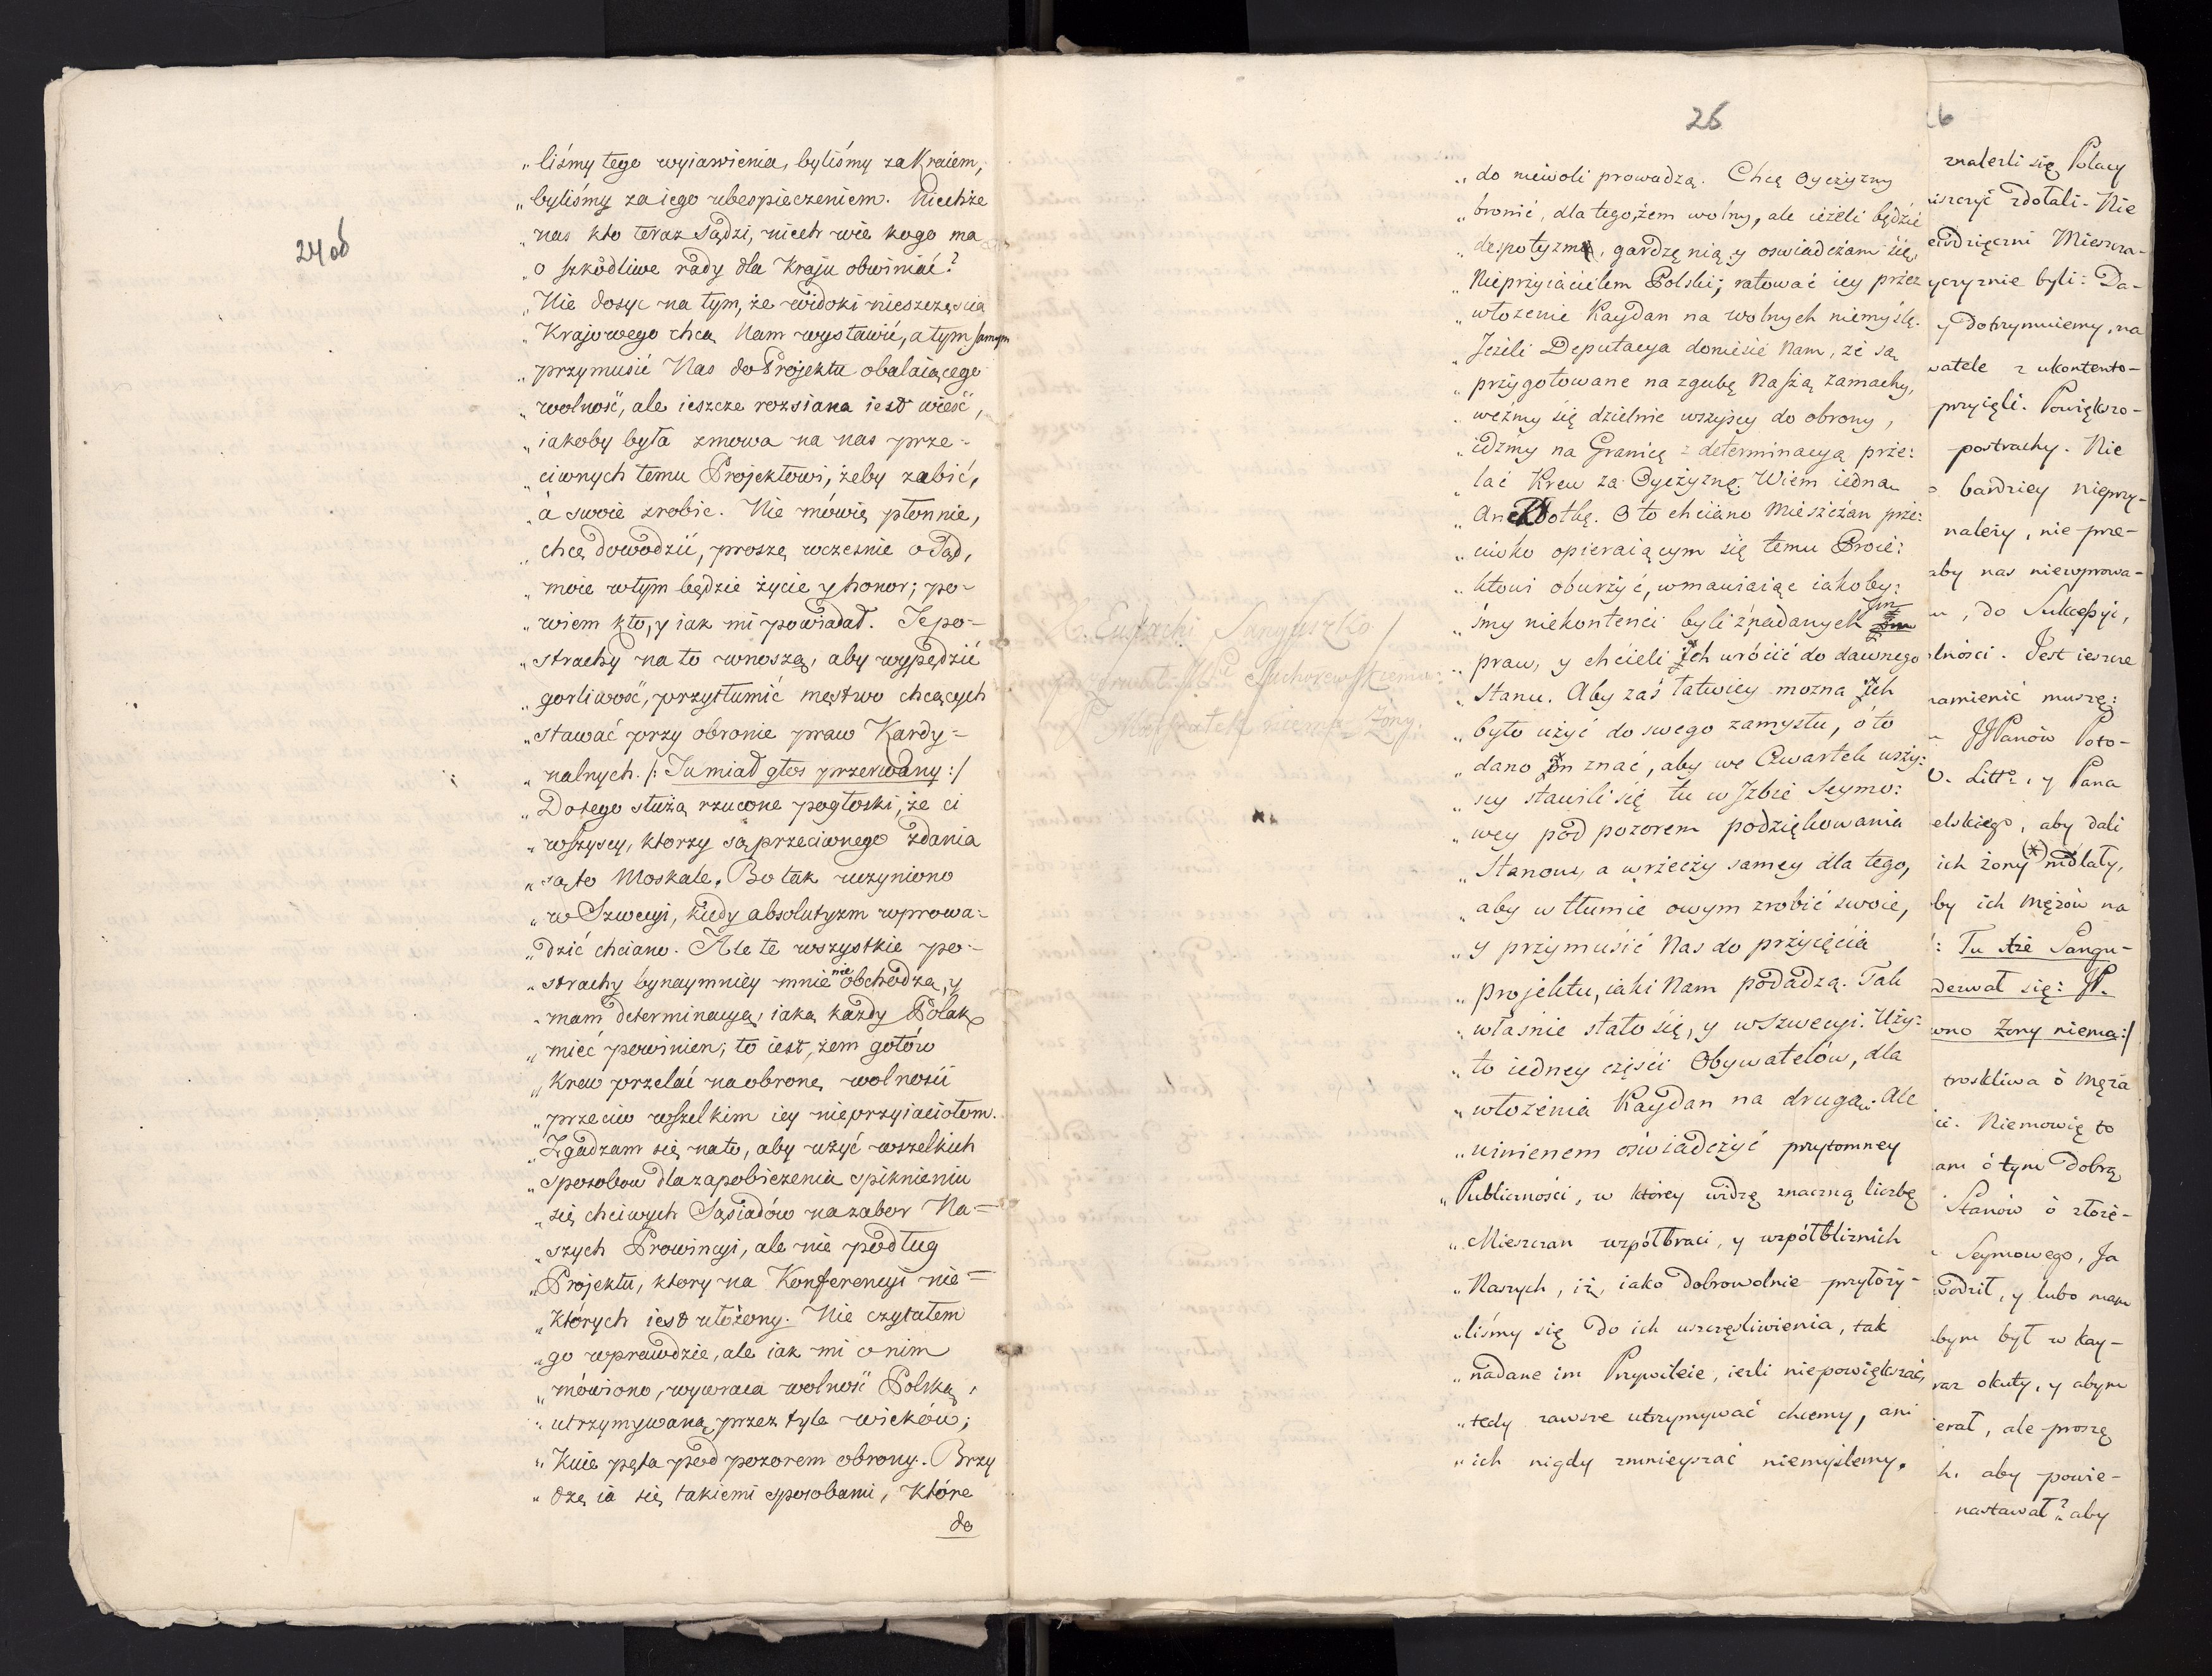 24 об
„liśmy tego wyiawienia, byliśmy za Kraiem,
„byliśmy za iego ubespieczeniem. Niechże
„nas kto teraz sądzi, niech wie kogo ma
„o szkodliwe rady dla Kraju obwiniać?
„Nie dosyc na tym, że widoki nieszczęscia
„Krajowego chcą Nam wystawić, a tym samym
„przymusić Nas do Projektu obalaiącego
„wolność, ale ieszcze rozsiana iest wieść,
„iakoby była zmowa na nas prze-
„ciwnych temu Projektowi, żeby zabić,
„á swoie zrobic. Nie mówię płonnie,
„chcę dowodzić, proszę wcześnie o Sąd,
„moie w tym będzie życie y honor; po-
„wiem kto, y iak mi powiadał. Te po-
„strachy na to wnoszą, aby wypędzić
„gorliwość, przytłumić męstwo chcących
„stawać przy obronie praw Kardy=
„nalnych. /: Tu miał głos przerwany :/
„Do tego służą rzucone pogłoski, że ci
„wszyscy, ktorzy są przeciwnego zdania
„są to Moskale. Bo tak uczyniono
„w Szwecyi, kiedy absolutyzm wprowa-
„dzić chciano. Ale te wszystkie po-
„strachy bynaymniey mnie nie obchodzą, y
„mam determinacyą, iaką każdy Polak
„mieć powinien; to iest, żem gotów
„krew przelać na obronę wolności
„przeciw wszelkim iey nieprzyiaciołom.
„Zgadzam się na to, aby użyć wszelkich
„sposobow dla zapobieżenia spiknieniu
„się chciwych Sąsiadów na zabor Na=
„szych Prowincyi, ale nie podług
„Projektu, ktory na Konferencyi nie=
„których iest ułożony. Nie czytałem
„go wprawdzie, ale iak mi o nim
„mówiono, wywraca wolność Polską,
„utrzymywaną przez tyle wieków;
„Kuie pęta pod pozorem obrony. Brzy
„dzę ia się takiemi sposobami, które
do
X. Eustachi Sanguszko
Suchorzewskiemu
Marszałek niema Żony.
26
„do niewoli prowadzą. Chcę Oyczyzny
„bronić, dla tego, żem wolny, ale ieżeli będzie
„despotyzm, gardzę nią, y oswiadczam się,
„Nieprzyiacielem Polski; ratować iey przez
„włożenie Kaydan na wolnych niemyślę.
„Jeżili Deputacya doniesie Nam, że są
„przygotowane na zgubę Naszą zamachy,
„weźmy się dzielnie wszyscy do obrony,
„idźmy na Granicę z determinacyą prze:
„lać Krew za Oyczyznę. Wiem iedną
„Anekdotkę. Oto chciano Mieszczan prze:
„ciwko opieraiącym się temu Proie:
„ktowi oburzyć, wmawiaiąc iakoby:
„śmy niekontenci byli z nadanych Im
„praw, y chcieli Ich wrócić do dawnego
„stanu. Aby zaś łatwiey można Ich
„było użyć do swego zamysłu, ó to
„dano Im znać, aby we Czwartek wszy:
„scy stawili się tu w Izbie Seymo:
„wey pod pozorem podziękowania
„Stanom, a w rzeczy samey dla tego,
„aby w tłumie owym zrobić swoie,
„y przymusić Nas do przyięcia
„projektu, iaki Nam podadzą. Tak
„własnie stało się, y w Szwecyi. Uży:
„to iedney części Obywatelów, dla
„włożenia Kaydan na drugą. Ale
„winienem oświadczyć przytomney
„Publiczności, w którey widzę znaczną liczbę
„Mieszczan współbraci, y współbliznich
„Naszych, iż, iako dobrowolnie przyłoży-
„liśmy się do ich uszczęśliwienia, tak
„nadane im Przywileie, ieżli niepowiększać,
„tedy zawsze utrzymywać chcemy, ani
„ich nigdy zmnieyszać niemyślemy.
znaleźli się Polacy
iszczyć zdołali. Nie
ewdzięczni Mieszcza-
yczyznie byli: Da-
y dotrzymuiemy, na
watele z ukontento-
przyięli. Powiększo-
postrachy. Nie
bardziey nieprzy-
należy, nie prze-
aby nas niewprowa-
, do Sukcessyi,
lności. Jest ieszcze
namienić muszę:
JJPanów Poto-
Litt: , y Pana
elskiego, aby dali
ich żony (*) mdlały,
by ich Mężów na
: Tu Xże Sangu-
derwał się: JP.
wno Żony niema:/
troskliwa ó Męża
ie. Niemowię to
am ó tym dobrą
Stanów ó złożę-
Seymowego, Ja
wodził, y lubo mam
bym był w kay-
raz okuty, y abym
ierał, ale proszę
h. aby powie-
nastawał? aby